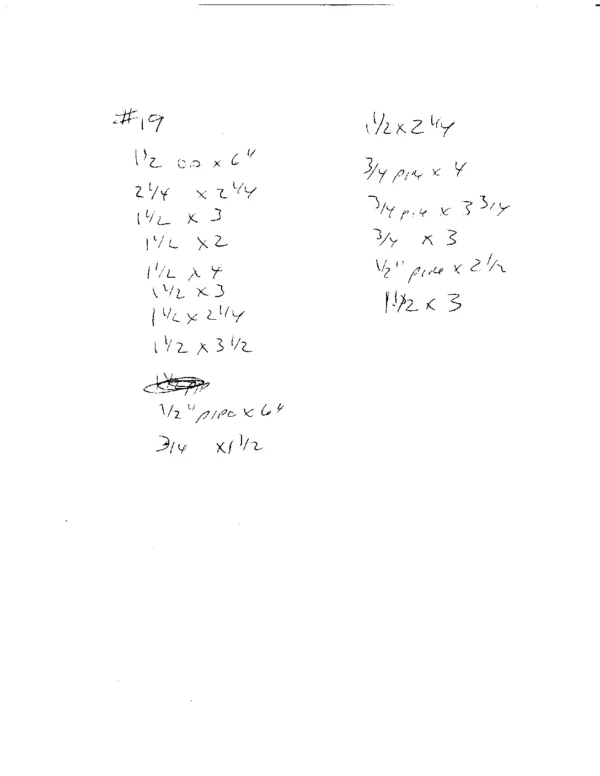 #19
1 1/2 OD x 6"
2 1/4 x 2 1/4
1 1/2 x 3
1 1/2 x 2
1 1/2 x 4
1 1/2 x 3
1 1/2 x 2 1/4
1 1/2 x 3 1/2
1/2" pipe x 6"
3/4 x 1 1/2
1 1/2 x 2 1/4
3/4 pipe x 4
3/4 pipe x 3 3/4
3/4 x 3
1/2" pipe x 2 1/2
1 1/2 x 3